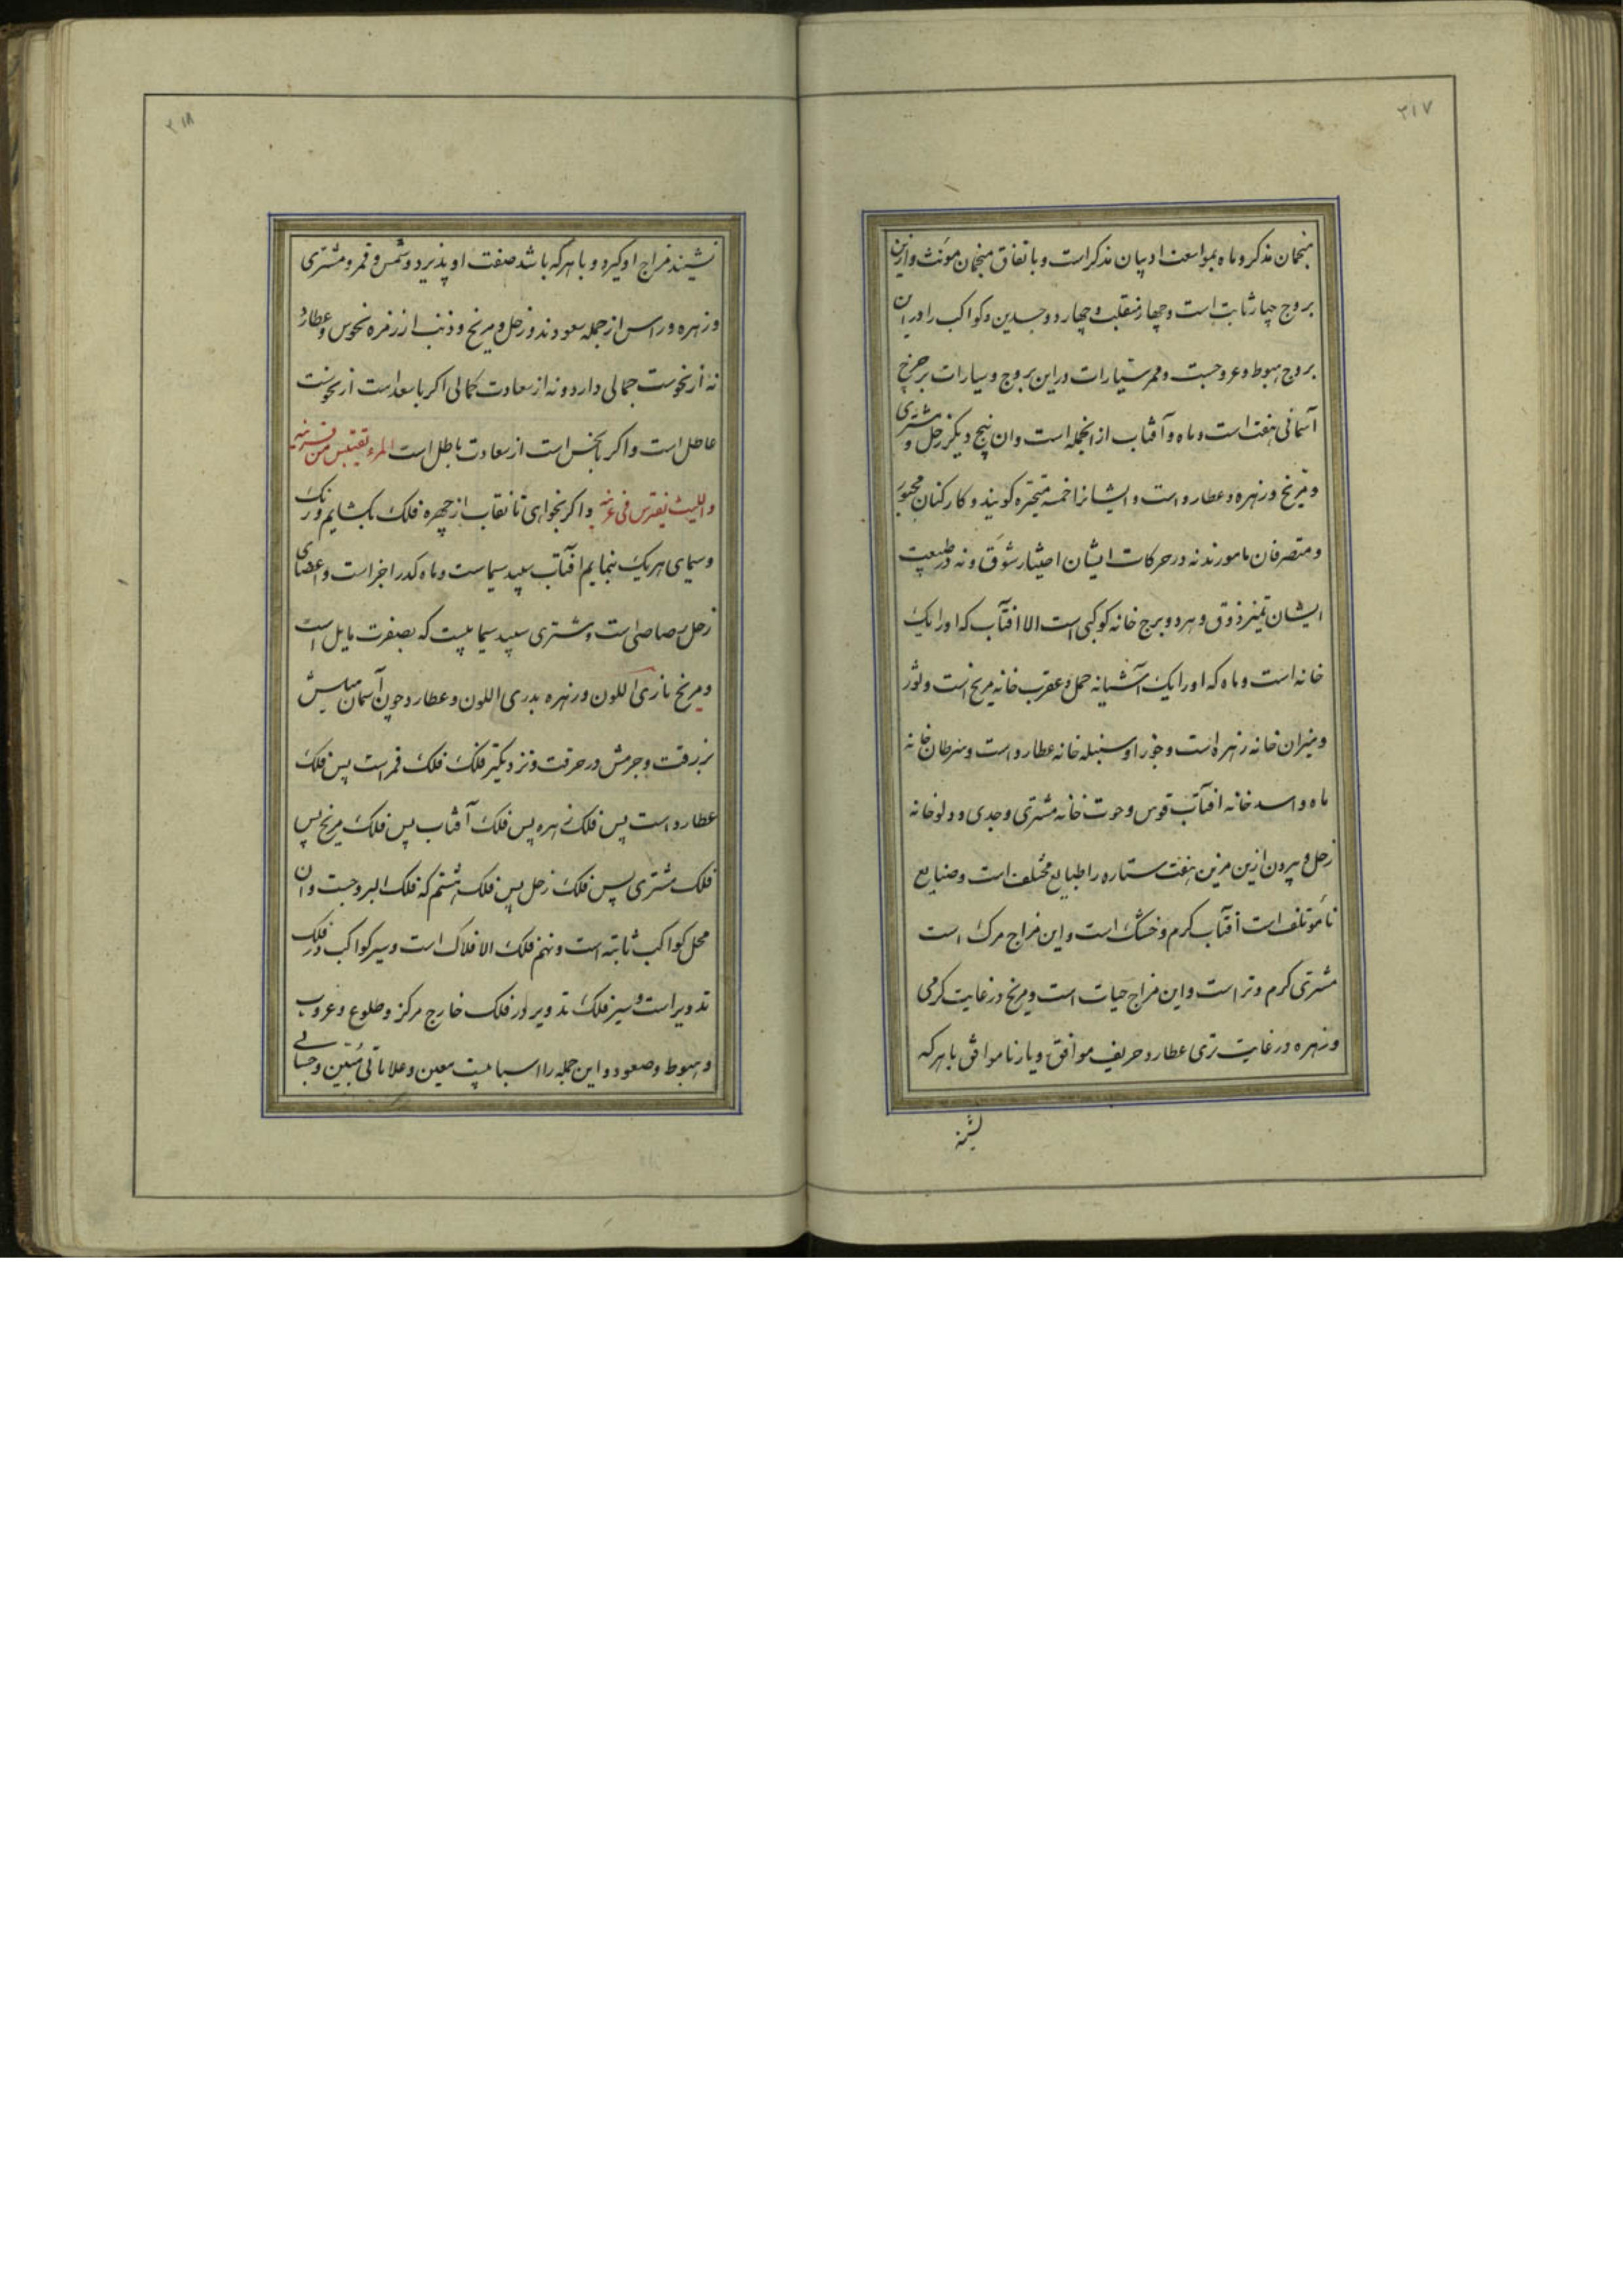 ٣١٧
منجمان مذکر و ماه بموافقت ادیبان مذکر است و باتفاق منجمان مونث و ازین
بروج چهار ثابت است و چهار منقلب و چهار دو جسدین و کواکب را در ان
بروج هبوط و عروجست و ممر سیارات در این بروج و سیارات بر چرخ
آسمانی هفت است و ماه و آفتاب از انجمله است و ان پنج دیکر زحل و مشتری
و مریخ و زهره و عطارد است و ایشانرا خمسه متحیره کویند و کارکنان مجبور
و متصرفان مامورند نه در حرکات ایشان اختیار شوق و نه در طبیعت
ایشان تمیز ذوق و هر دو برج خانه کوکبی است الا افتاب که او را یک
خانه است و ماه که او را یک آشیانه حمل و عقرب خانه مریخ است و ثور
و میزان خانه زهره است و جوزا و سنبله خانه عطارد است و سرطان خانه
ماه و اسد خانه افتاب قوس و حوت خانه مشتری و جدی و دلو خانه
زحل و بیرون ازین مزین هفت ستاره را طبایع مختلف است و صنایع
نامؤتلف است افتاب کرم و خشک است و این مزاج مرک است
مشتری کرم و تر است و این مزاج حیات است و مریخ در غایت کرمی
و زهره در غایت تری عطارد حریف موافق و یار ناموافق با هر که
نشیند
٣١٨
نشیند مزاج او کیرد و با هر که باشد صفت او پذیرد و شمس و قمر و مشتری
و زهره و راس از جمله سعودند و زحل و مریخ و ذنب از زمره نحوس و عطارد
نه از نحوست جمالی دارد و نه از سعادت کمالی اکر با سعد است از نحوست
عاطل است و اکر با نحس است از سعادت باطل است المرء یقتبس من قرینه
واللیث یفترس فی عرینه و اکر بخواهی تا نقاب از چهره فلک بکشایم و رنک
و سیمای هر یک بنمایم افتاب سپید سیماست و ماه کدر اجزاست و اعضای
زحل رصاصی است و مشتری سپید سیماییست که بصفرت مایل است
و مریخ ناری اللون و زهره بدری اللون و عطارد چون آسمان میلش
بزرقت و جرمش در حرقت و نزدیکتر فلک فلک قمر است پس فلک
عطارد است پس فلک زهره پس فلک آفتاب پس فلک مریخ پس
فلک مشتری پس فلک زحل پس فلک هشتم که فلک البروجست و ان
محل کواکب ثابته است و نهم فلک الافلاک است و سیر کواکب در فلک
تدویر است و سیر فلک تدویر در فلک خارج مرکز و طلوع و غروب
و هبوط و صعود و این جمله را اسبابیست معین و علاماتی مبین و حسابی